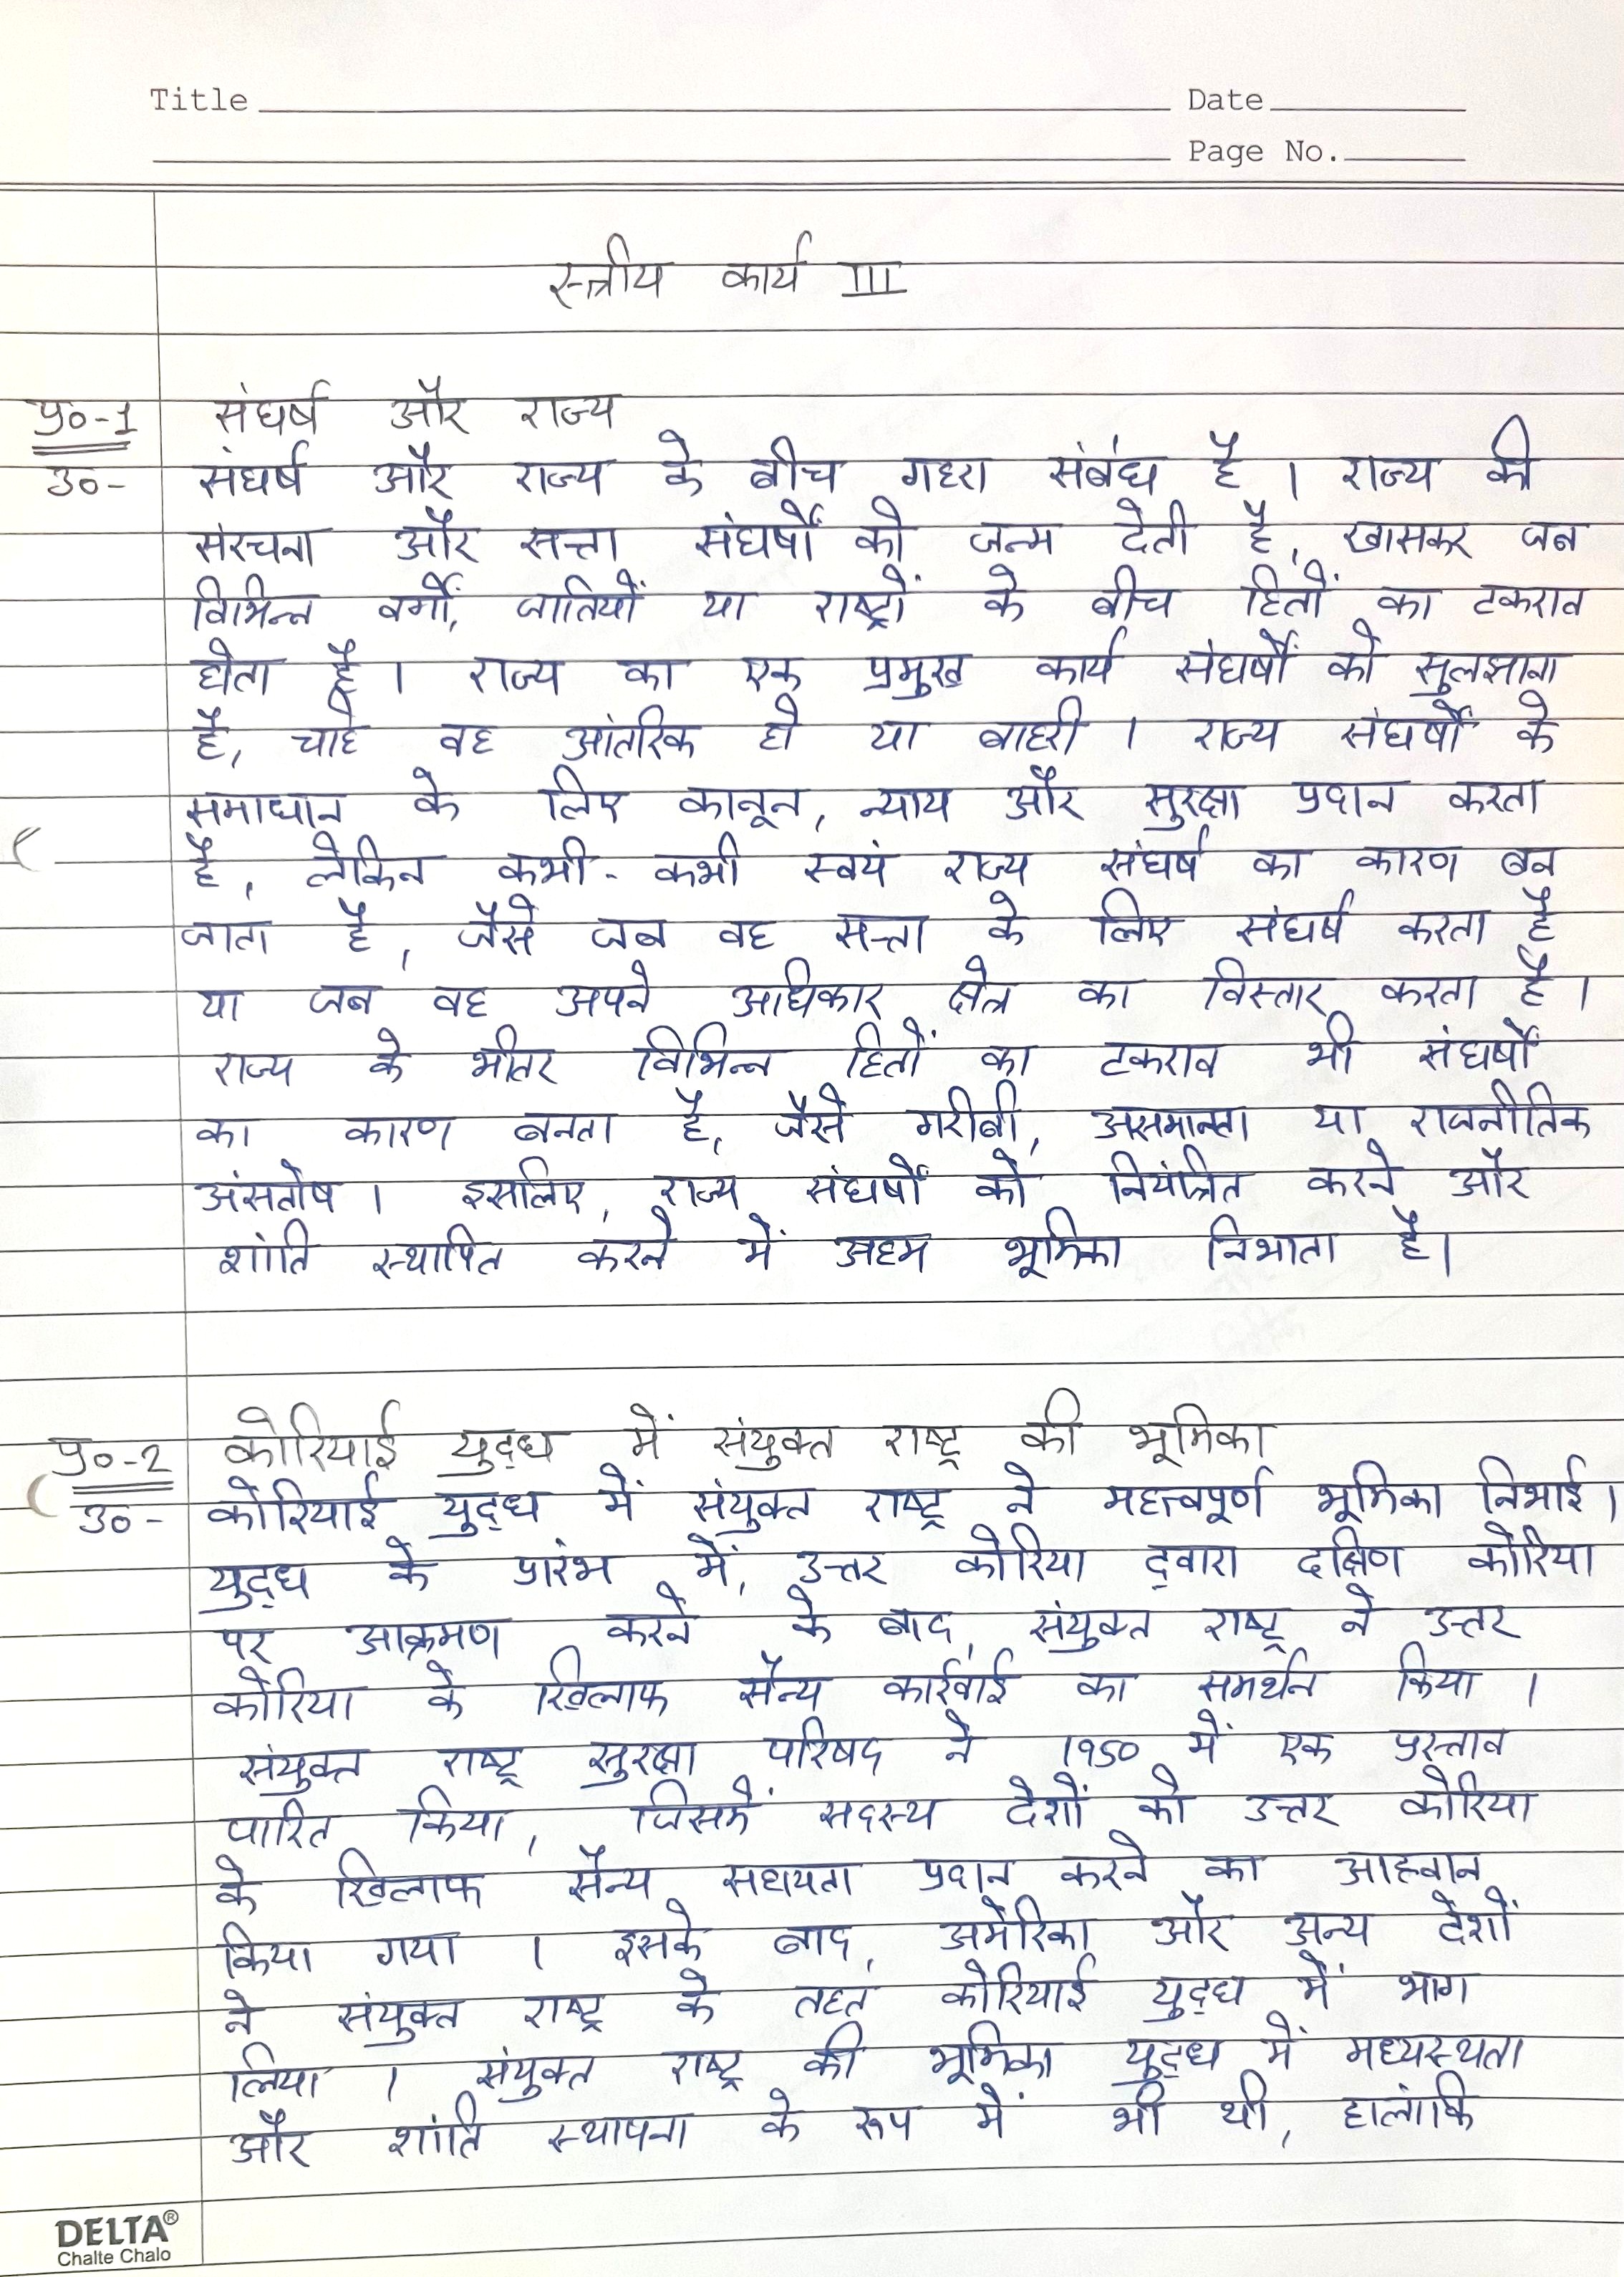 Title Date
Page No.
स्त्रीय कार्य III
प्र०-1 संघर्ष और राज्य
उ०- संघर्ष और राज्य के बीच गहरा संबंध है । राज्य की
संरचना और सत्ता संघर्षों को जन्म देती है, खासकर जब
विभिन्न वर्गों, जातियों या राष्ट्रों के बीच हितों का टकराव
होता है । राज्य का एक प्रमुख कार्य संघर्षों को सुलझाना
है, चाहे वह आंतरिक हो या बाहरी । राज्य संघर्षों के
समाधान के लिए कानून, न्याय और सुरक्षा प्रदान करता
है, लेकिन कभी-कभी स्वयं राज्य संघर्ष का कारण बन
जाता है, जैसे जब वह सत्ता के लिए संघर्ष करता है
या जब वह अपने अधिकार क्षेत्र का विस्तार करता है ।
राज्य के भीतर विभिन्न हितों का टकराव भी संघर्षों
का कारण बनता है, जैसे गरीबी, असमानता या राजनीतिक
अंसतोष । इसलिए, राज्य संघर्षों को नियंत्रित करने और
शांति स्थापित करने में अहम भूमिका निभाता है।
प्र०-2 कोरियाई युद्ध में संयुक्त राष्ट्र की भूमिका
उ०- कोरियाई युद्ध में संयुक्त राष्ट्र ने महत्त्वपूर्ण भूमिका निभाई ।
युद्ध के प्रारंभ में, उत्तर कोरिया द्वारा दक्षिण कोरिया
पर आक्रमण करने के बाद, संयुक्त राष्ट्र ने उत्तर
कोरिया के खिलाफ सैन्य कार्रवाई का समर्थन किया ।
संयुक्त राष्ट्र सुरक्षा परिषद ने 1950 में एक प्रस्ताव
पारित किया, जिसमें सदस्य देशों को उत्तर कोरिया
के खिलाफ सैन्य सहायता प्रदान करने का आह्वान
किया गया । इसके बाद, अमेरिका और अन्य देशों
ने संयुक्त राष्ट्र के तहत कोरियाई युद्ध में भाग
लिया । संयुक्त राष्ट्र की भूमिका युद्ध में मध्यस्थता
और शांति स्थापना के रूप में भी थी, हालांकि
DELTA®
Chalte Chalo